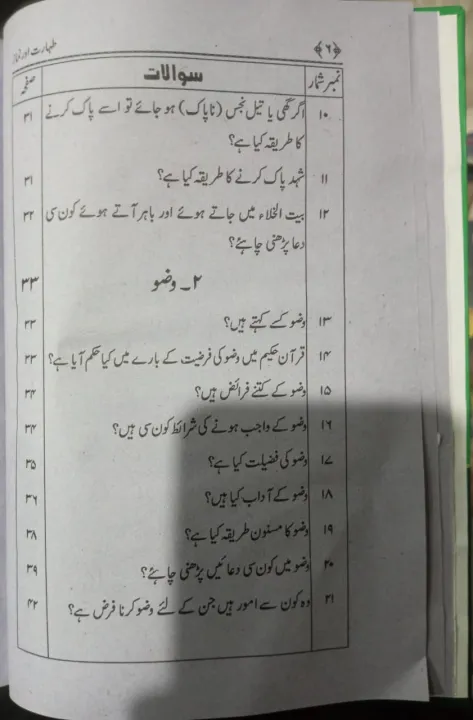 ﴿۶﴾ طہارت اور نماز
نمبر شمار سوالات صفحہ
۱۰ اگر گھی یا تیل نجس (ناپاک) ہو جائے تو اسے پاک کرنے ۳۱
کا طریقہ کیا ہے؟
۱۱ شہد پاک کرنے کا طریقہ کیا ہے؟ ۳۱
۱۲ بیت الخلاء میں جاتے ہوئے اور باہر آتے ہوئے کون سی ۳۲
دعا پڑھنی چاہئے؟
۲۔ وضو ۳۳
۱۳ وضو کسے کہتے ہیں؟ ۳۳
۱۴ قرآن حکیم میں وضو کی فرضیت کے بارے میں کیا حکم آیا ہے؟ ۳۳
۱۵ وضو کے کتنے فرائض ہیں؟ ۳۴
۱۶ وضو کے واجب ہونے کی شرائط کون سی ہیں؟ ۳۴
۱۷ وضو کی فضیلت کیا ہے؟ ۳۵
۱۸ وضو کے آداب کیا ہیں؟ ۳۶
۱۹ وضو کا مسنون طریقہ کیا ہے؟ ۳۸
۲۰ وضو میں کون سی دعائیں پڑھنی چاہئے؟ ۳۹
۲۱ وہ کون سے امور ہیں جن کے لئے وضو کرنا فرض ہے؟ ۴۲